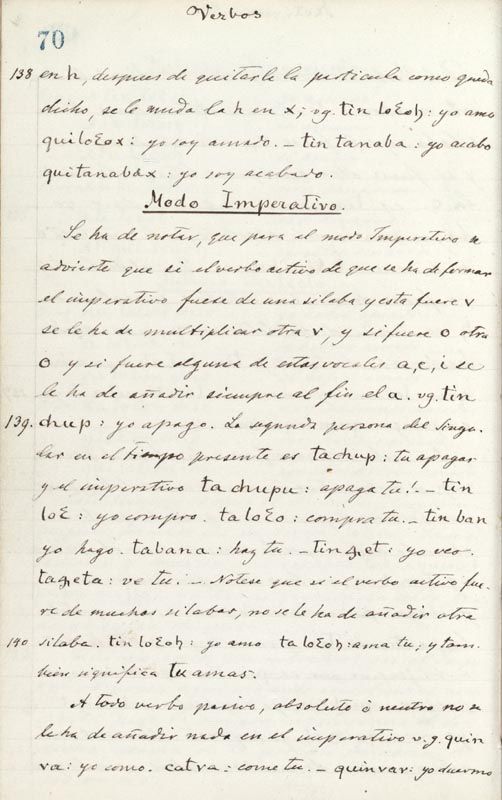 Verbos
70
138 en h, despues de quitarle la particula como queda
dicho, se le muda la h en x; vg. tin loƐoh: yo amo
quiloƐox: yo soy amado. – tin tanaba: yo acabo
quitanabax: yo soy acabado.
Modo Imperativo.
Se ha de notar, que para el modo Imperativo se
advierte que si el verbo activo de que se ha de formar
el imperativo fuese de una silaba y esta fuere v
se le ha de multiplicar otra v, y si fuere o otra
o y si fuere alguna de estas vocales a, e, i se
le ha de añadir siempre al fin el a. vg. tin
139. chup: yo apago. La segunda persona del Singu-
lar en el tiempo presente es tachup: tu apagas
y el imperativo tachupu: apaga tu! – tin
loƐ: yo compro. taloƐo: compra tu. – tin ban
yo hago. tabana: haz tu. – tinꜫet: yo veo.
taꜫeta: ve tu. – Notese que si el verbo activo fue-
re de muchas silabas, no se le ha de añadir otra
140 silaba. tin loƐoh: yo amo taloƐoh: ama tu; y tam-
bien significa tu amas.
A todo verbo pasivo, absoluto ó neutro no se
le ha de añadir nada en el imperativo v.g. quin
va: yo como. catva: come tu. – quinvar: yo duermo